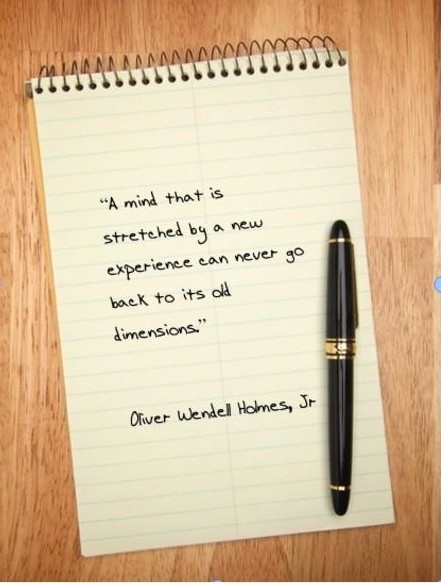 “A mind that is
stretched by a new
experience can never go
back to its old
dimensions.”
Oliver Wendell Holmes, Jr